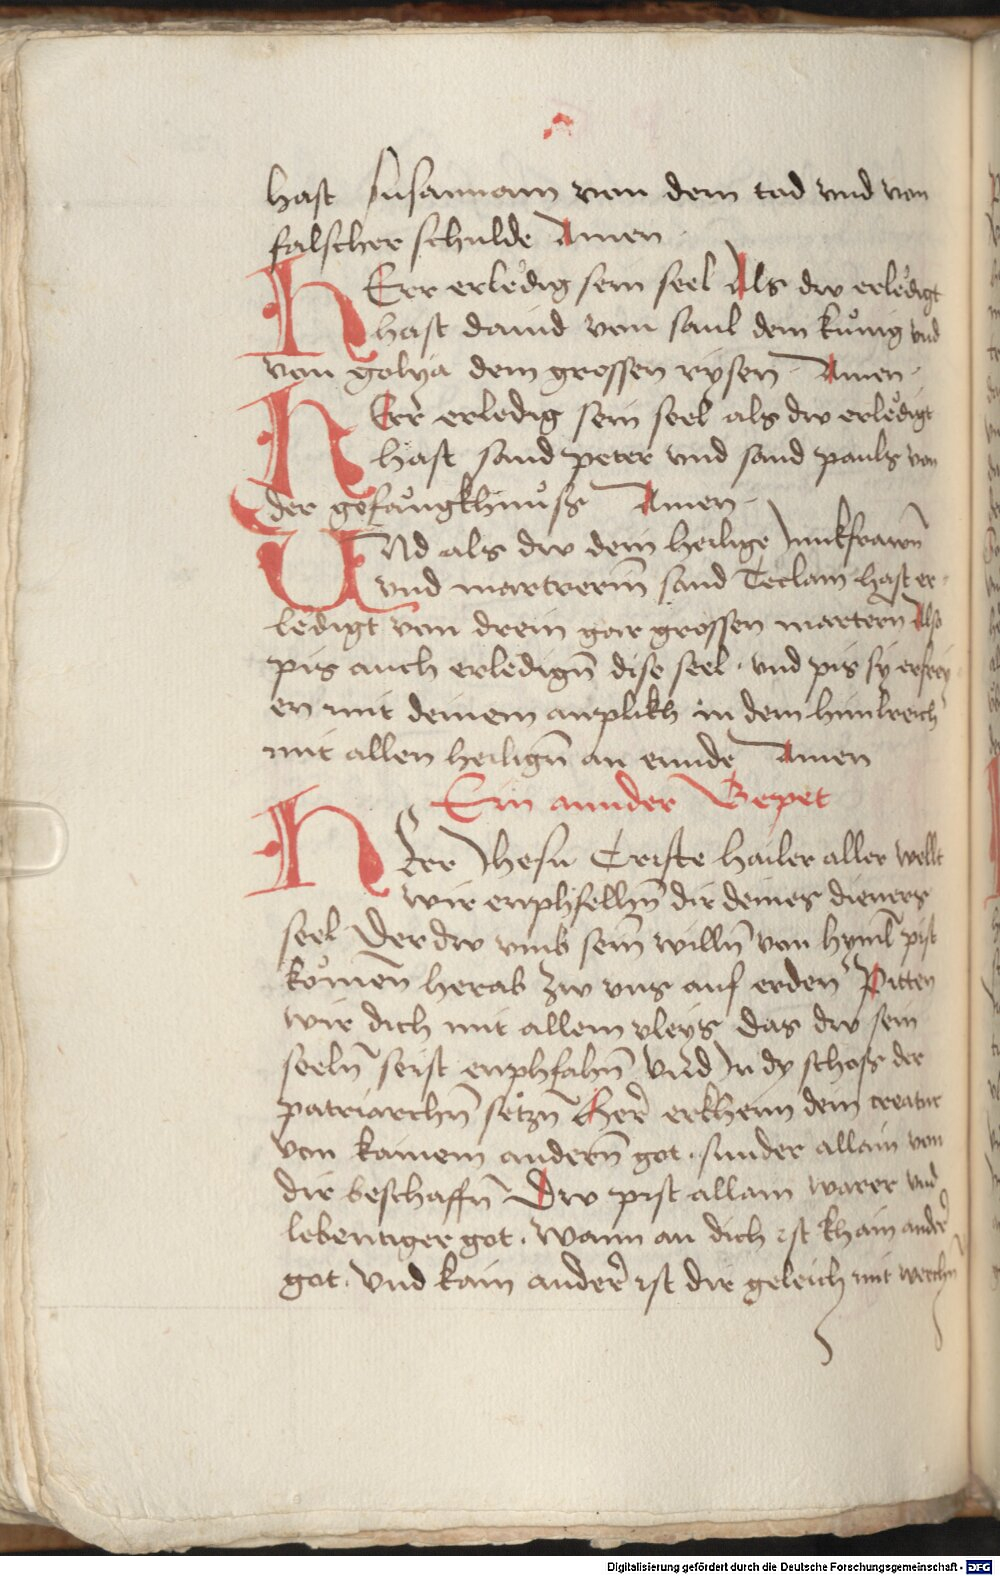 hast Susannam von dem tod vnd von
falscher schulde Amen
HErr erledig sein seel Als dw erledigt
hast dauid von saul dem kunig vnd
von golya dem grossen rysen Amen
HErr erledig sein seel als dw erledigt
hast sand peter vnd sand pauls von
der gefangkhnuss Amen
VNd als dw dein heilige Junkfrawn
vnd martrerin sand Teclam hast er
ledigt von drein gar grossen martern Also
pis auch erledign dise seel · vnd pis sy erfrey
en mit deinem anplikh in dem himlreich
mit allen heilign an ennde Amen
Ein annder Gepet
HErr Jhesu Criste hailer aller wellt
wir enphfellhn dir deines dieners
seel Der dw vmb sein willn von hyml pist
komen herab zw vns auf erden Pitten
wir dich mit allem vleys das dw sein
seeln seist enphfahn vnd In dy schoss der
patriarchn setzn Her erkhenn dein creatur
von kainem andern got · sunder allain von
dir beschaffn Dw pist allain warer vnd
lebentiger got · wann an dich ist khain ander
got · vnd kain ander ist dir geleich mit werchn
Digitalisierung gefördert durch die Deutsche Forschungsgemeinschaft - DFG